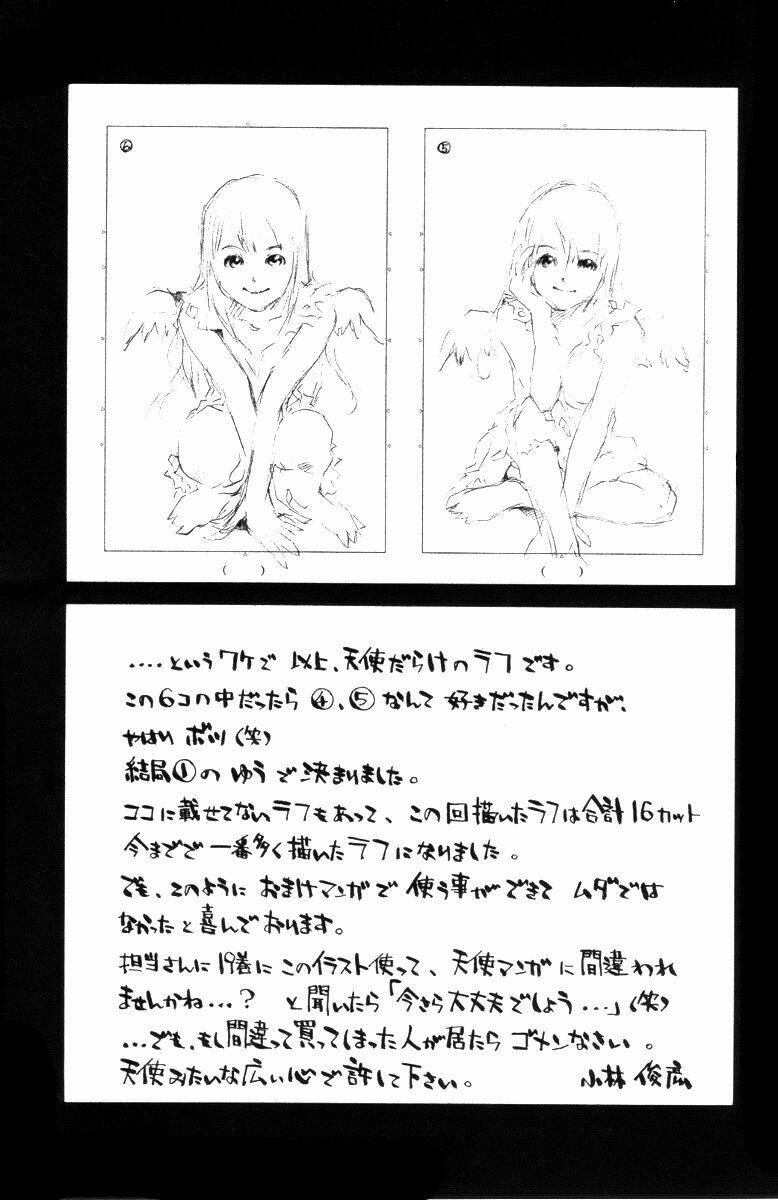 ⑥
⑤
( )
( )
....というワケで 以上、天使だらけのラフです。
この6コの中だったら ④、⑤なんて 好きだったんですが、
やはり ボツ(笑)
結局①の ゆうで決まりました。
ココに載せてないラフもあって、この回描いたラフは合計16カット
今までで 一番多く描いたラフになりました。
でも、このように おまけマンガで 使う事ができて ムダでは
なかったと喜んでおります。
担当さんに 19巻にこのイラスト使って、天使マンガに間違われ
ませんかね...? と聞いたら「今さら大丈夫でしょう...」(笑)
...でも、もし間違って買ってしまった人が居たら ゴメンなさい。
天使みたいな広い心で許して下さい。 小林 俊彦